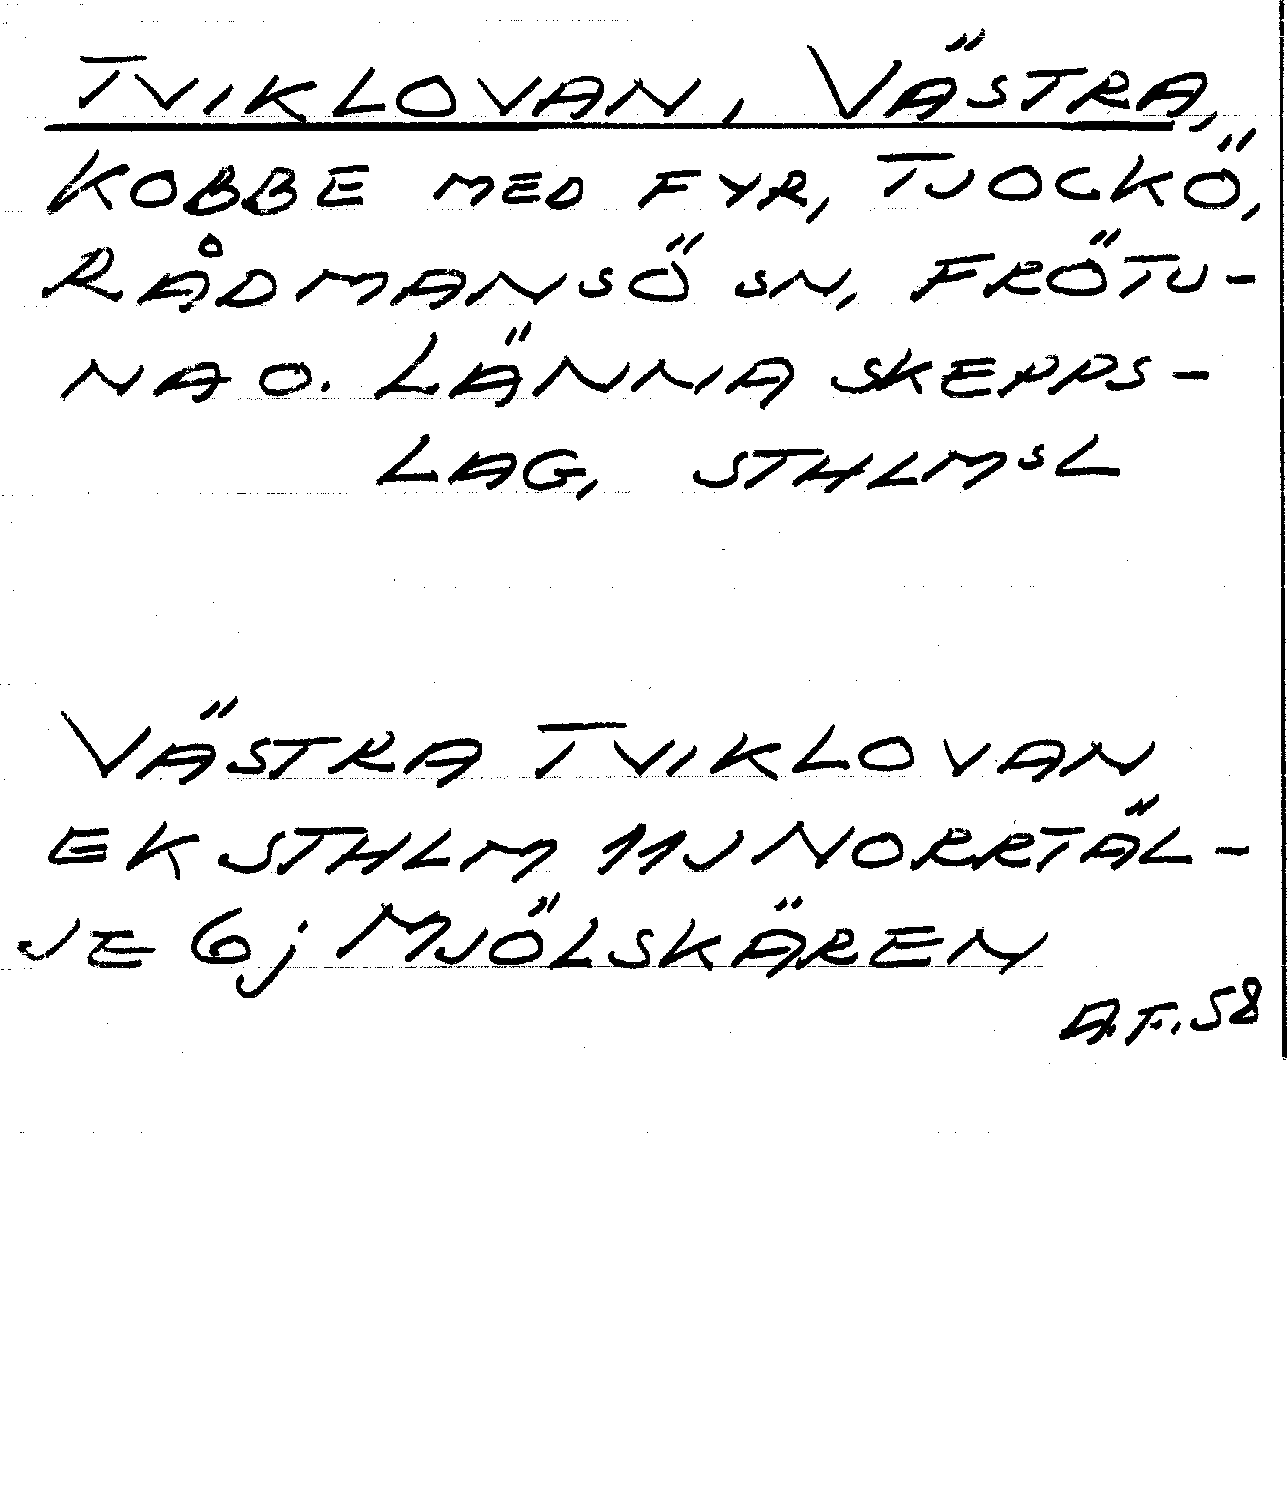 TVIKLOVAN, VÄSTRA,
KOBBE MED FYR, TJOCKÖ,
RÅDMANSÖ SN, FRÖTU-
NA O. LÄNNA SKEPPS-
LAG, STHLMSL
VÄSTRA TVIKLOVAN
EK STHLM 11J NORRTÄL-
JE 6j MJÖLSKÄREN
A.F. 58